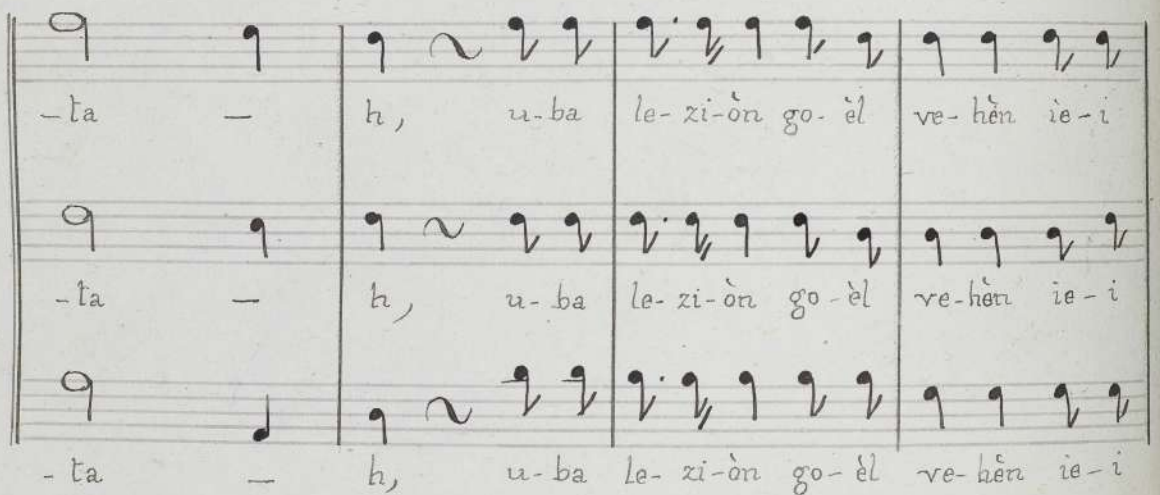 -ta — h, u-ba le-zi-òn go-èl ve-hèn ie-i
-ta — h, u-ba le-zi-òn go-èl ve-hèn ie-i
-ta — h, u-ba le-zi-òn go-èl ve-hèn ie-i